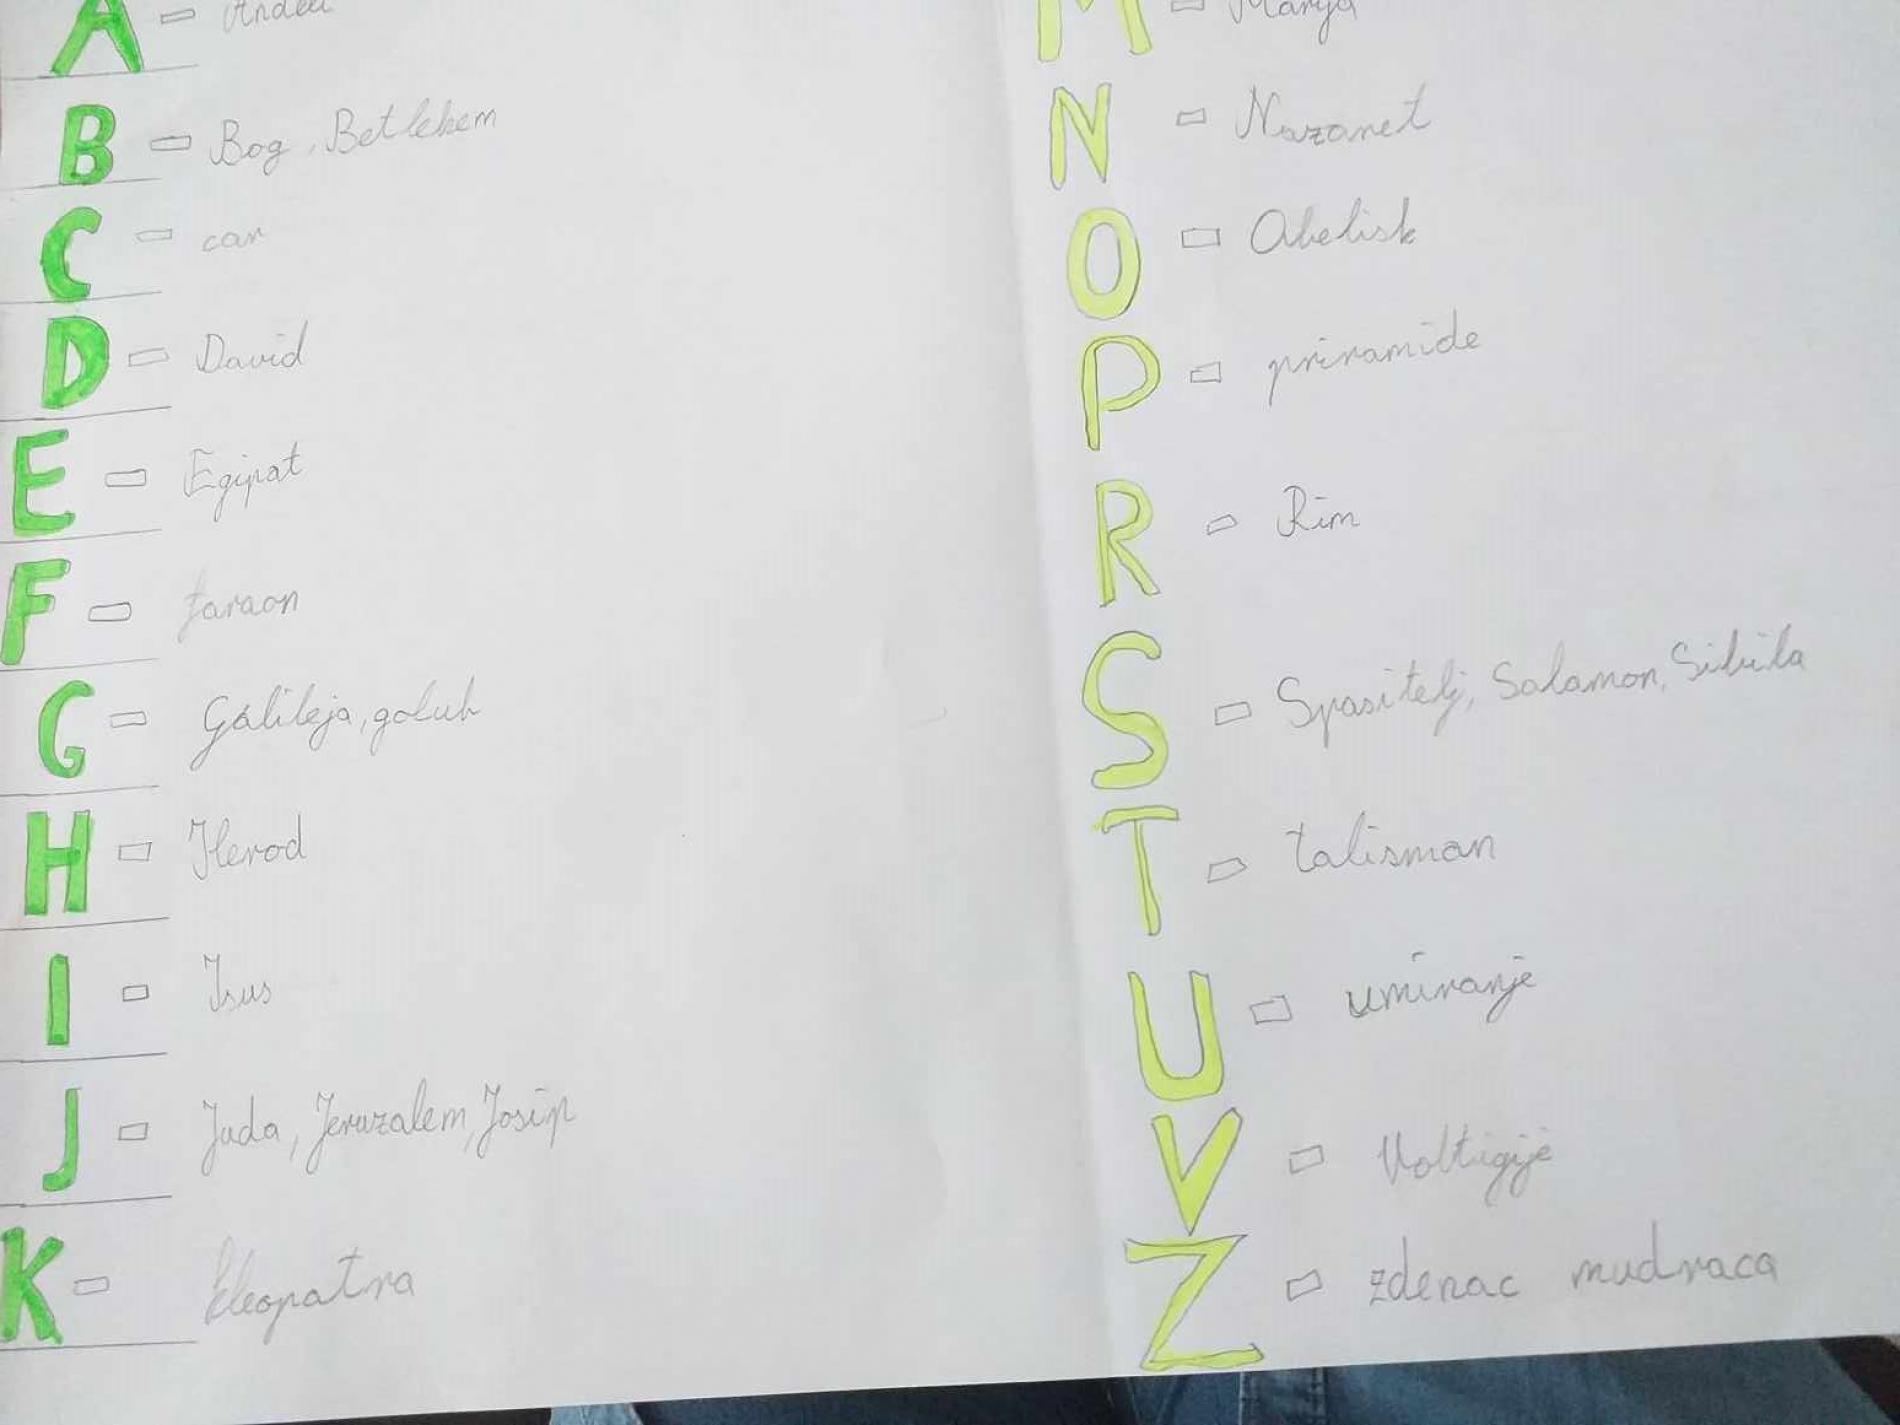 A - Anđeli
B - Bog, Betlehem
C - car
D - David
E - Egipat
F - faraon
G - Galileja, golub
H - Herod
I - Isus
J - Juda, Jeruzalem, Josip
K - Kleopatra
M - Marija
N - Nazaret
O - Obelisk
P - priramide
R - Rim
S - Spasitelj, Salamon, Sibila
T - talisman
U - umiranje
V - Voltigije
Z - zdenac mudraca